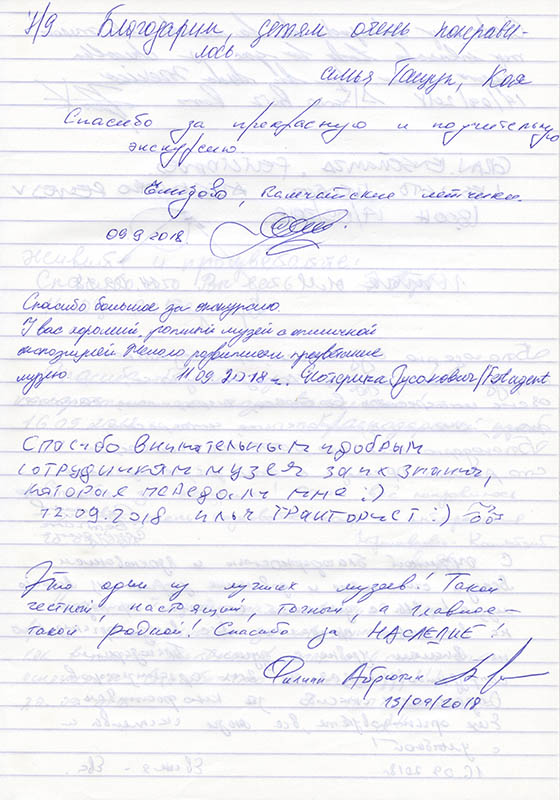 7/9 Благодарим, детям очень понрави-
лось
семья Гащук, Коля
Спасибо за прекрасную и поучительную
экскурсию.
Елизово, Камчатские летчики.
09.9.2018.
Спасибо большое за экскурсию.
У вас хороший, родной музей с отличной
экспозицией. Желаю развития и процветания
музею 11.09.2018 г. Екатерина Гусакович/
Спасибо внимательным и добрым
сотрудникам музея за их знания,
которая передали мне :)
12.09.2018 Илья Тракторист :)
Это один из лучших музеев! Такой
честный, настоящий, точный, а главное –
такой родной! Спасибо за НАСЛЕДИЕ!
Филипп Абрютин
13/09/2018